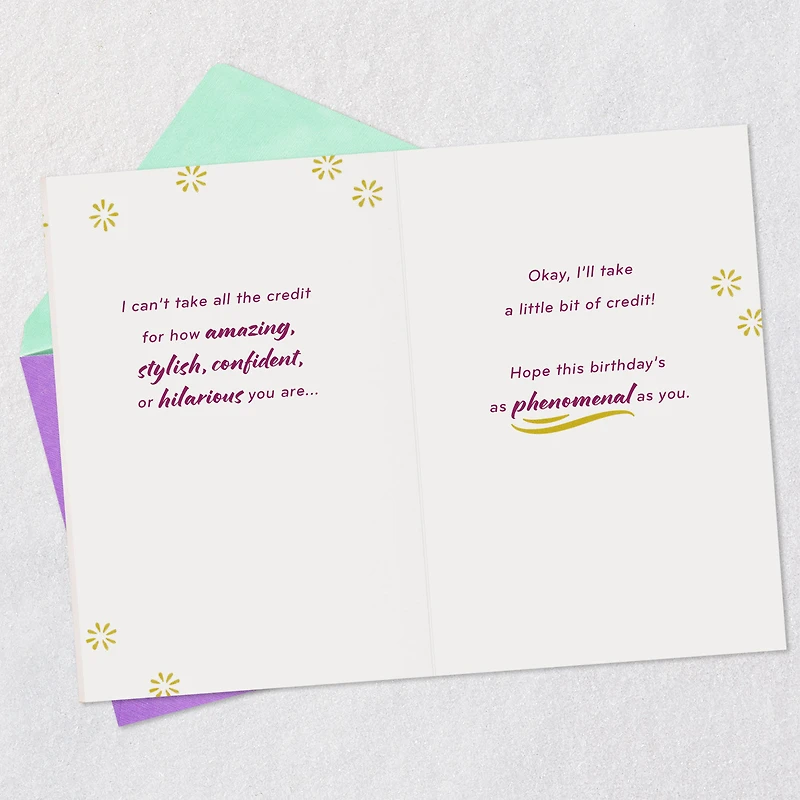 I can't take all the credit
for how amazing,
stylish, confident,
or hilarious you are...
Okay, I'll take
a little bit of credit!
Hope this birthday's
as phenomenal as you.